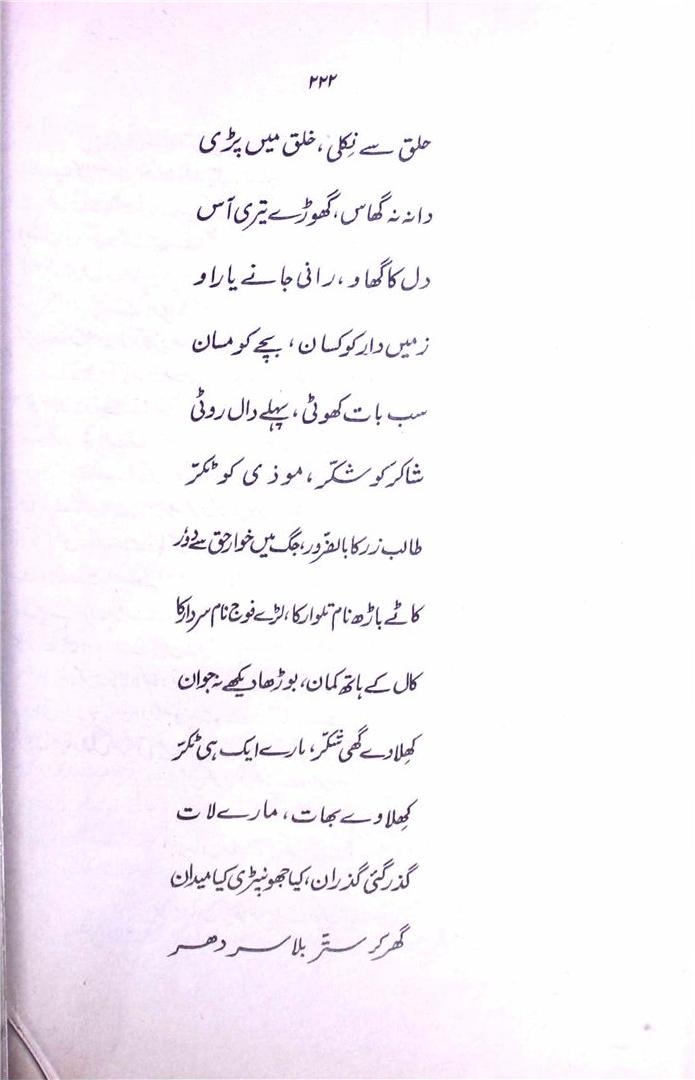 ۲۲۲
حلق سے نِکلی، خلق میں پڑی
دانہ نہ گھاس، گھوڑے تیری آس
دل کا گھاو، رانی جانے یا راو
زمیں دار کو کسان، بچے کو مسان
سب بات کھوٹی، پہلے دال روٹی
شاکر کو شکّر، موذی کو ٹکّر
طالب زر کا بالضّرور، جگ میں خوار حق سے دور
کاٹے باڑھ نام تلوار کا، لڑے فوج نام سردار کا
کال کے ہاتھ کمان، بوڑھا دیکھے نہ جوان
کھِلاوے گھی شکّر، مارے ایک ہی ٹکّر
کھِلاوے بھات، مارے لات
گذر گئی گذران، کیا جھونپڑی کیا میدان
گھر کر ستّر بلا سر دھر